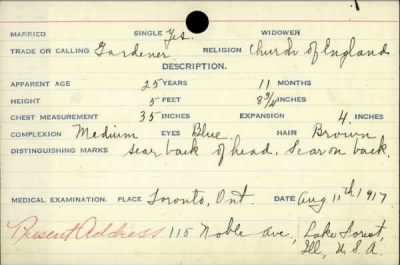 MARRIED SINGLE Yes. WIDOWER
TRADE OR CALLING Gardener RELIGION Church of England
DESCRIPTION.
APPARENT AGE 25 YEARS 11 MONTHS
HEIGHT 5 FEET 8 3/4 INCHES
CHEST MEASUREMENT 35 INCHES EXPANSION 4 INCHES
COMPLEXION Medium EYES Blue HAIR Brown
DISTINGUISHING MARKS Scar back of head. Scar on back.
MEDICAL EXAMINATION. PLACE Toronto, Ont. DATE Aug 11th 1917
Present Address 115 Noble Ave., Lake Forest,
Ill, U.S.A.